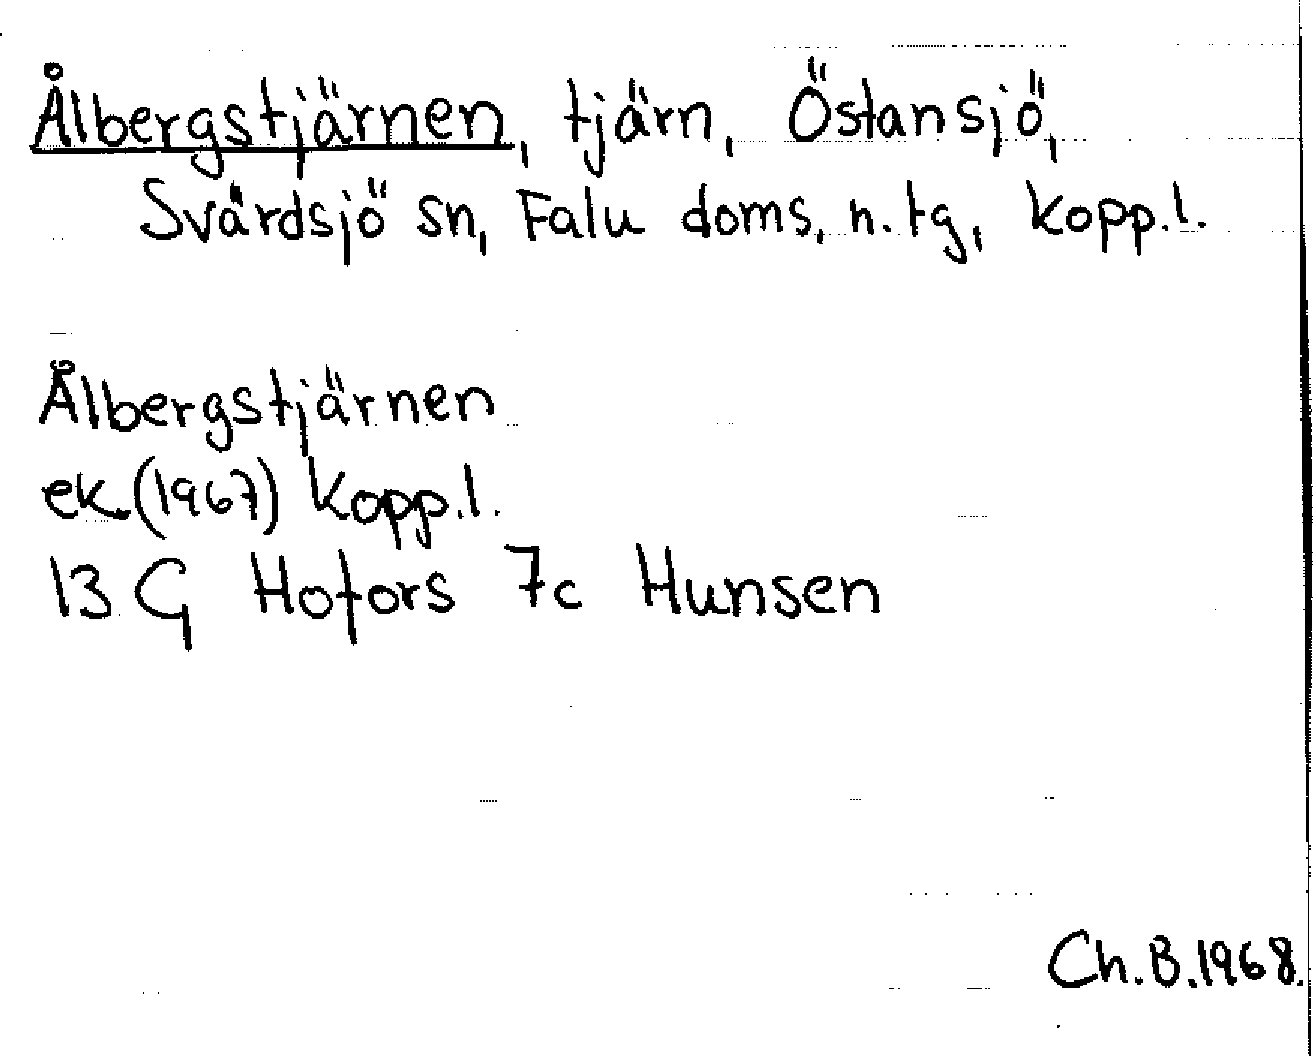 Ålbergstjärnen, tjärn, Östansjö,
Svärdsjö sn, Falu doms, n. tg, Kopp.l.
Ålbergstjärnen
ek.(1967) Kopp.l.
13 G Hofors 7c Hunsen
Ch.B.1968.